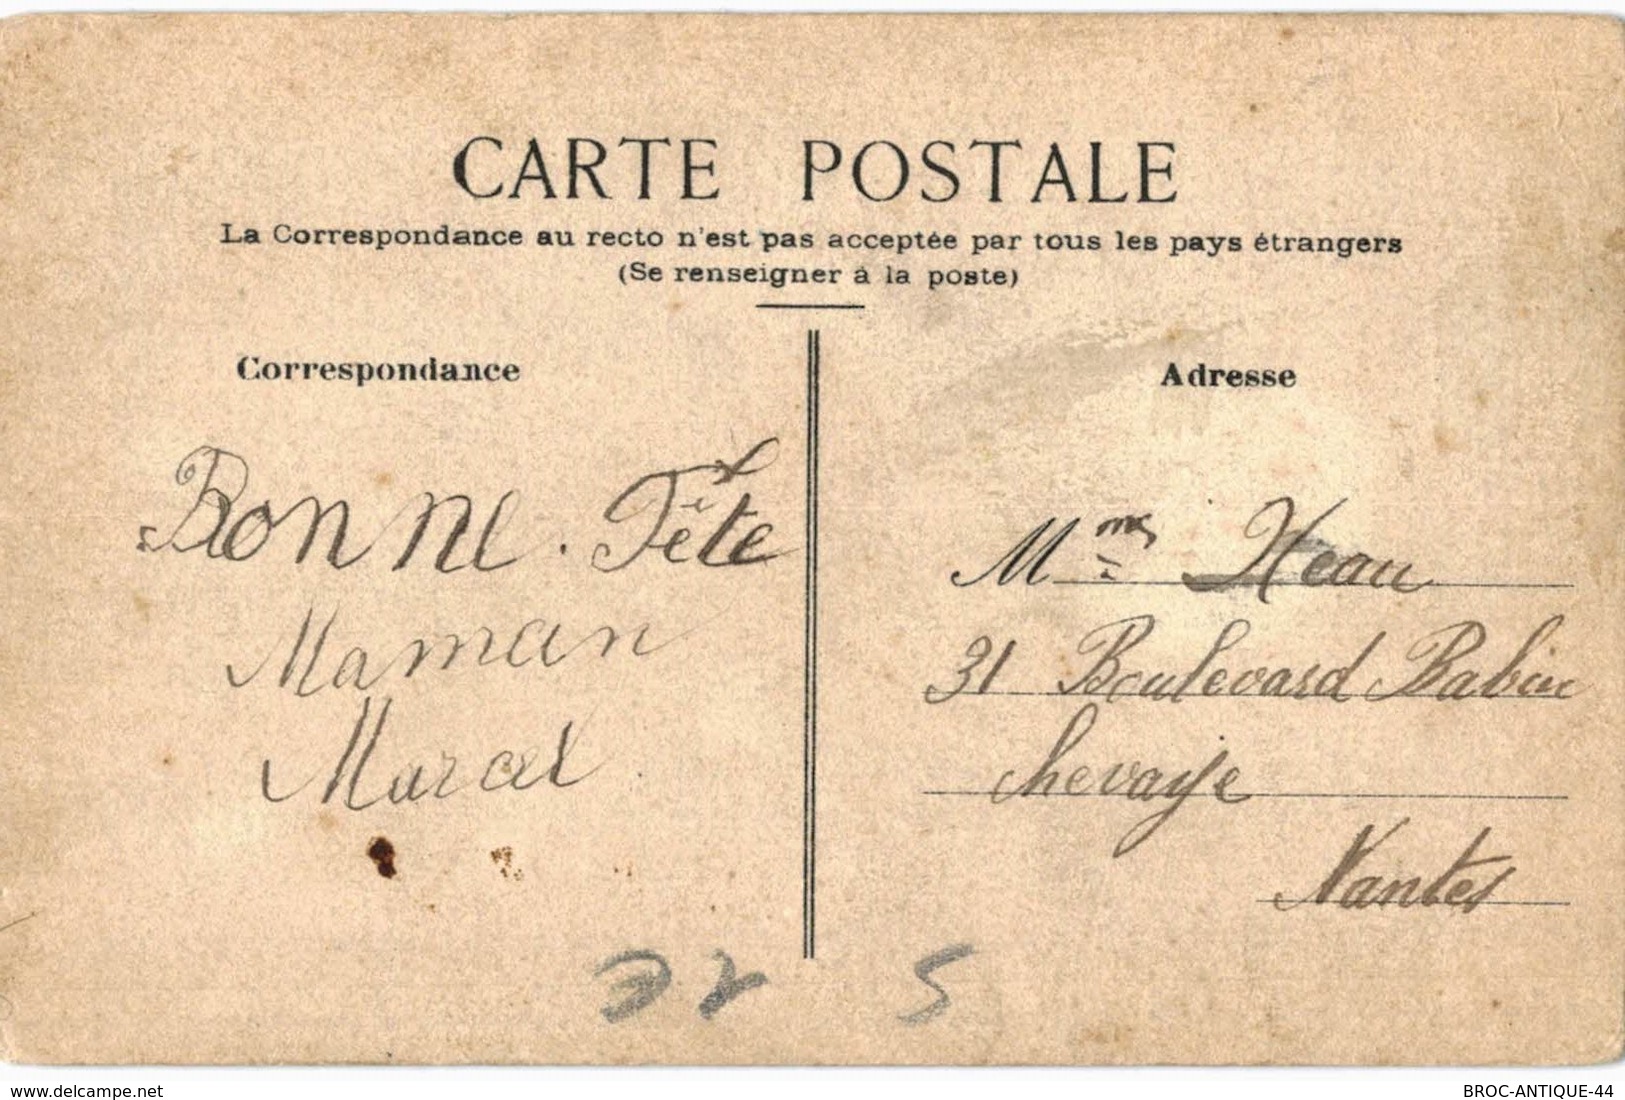 CARTE POSTALE
La Correspondance au recto n'est pas acceptée par tous les pays étrangers
(Se renseigner à la poste)
Correspondance
Bonne. Fête
Maman
Marcel
Adresse
Mmes Heau
31 Boulevard Babin
Chevaye
Nantes
5
www.delcampe.net
BROC-ANTIQUE-44